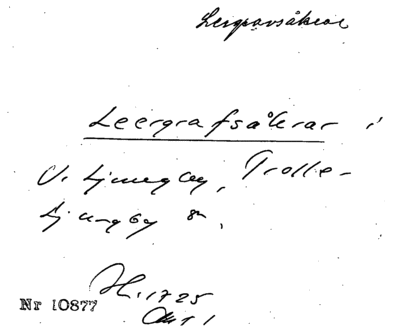 Lergravsåkrar
Leergrafsåkrar i
V. Ljungby, Trolle-
Ljungby sn.
H. 1725
Nr 10877